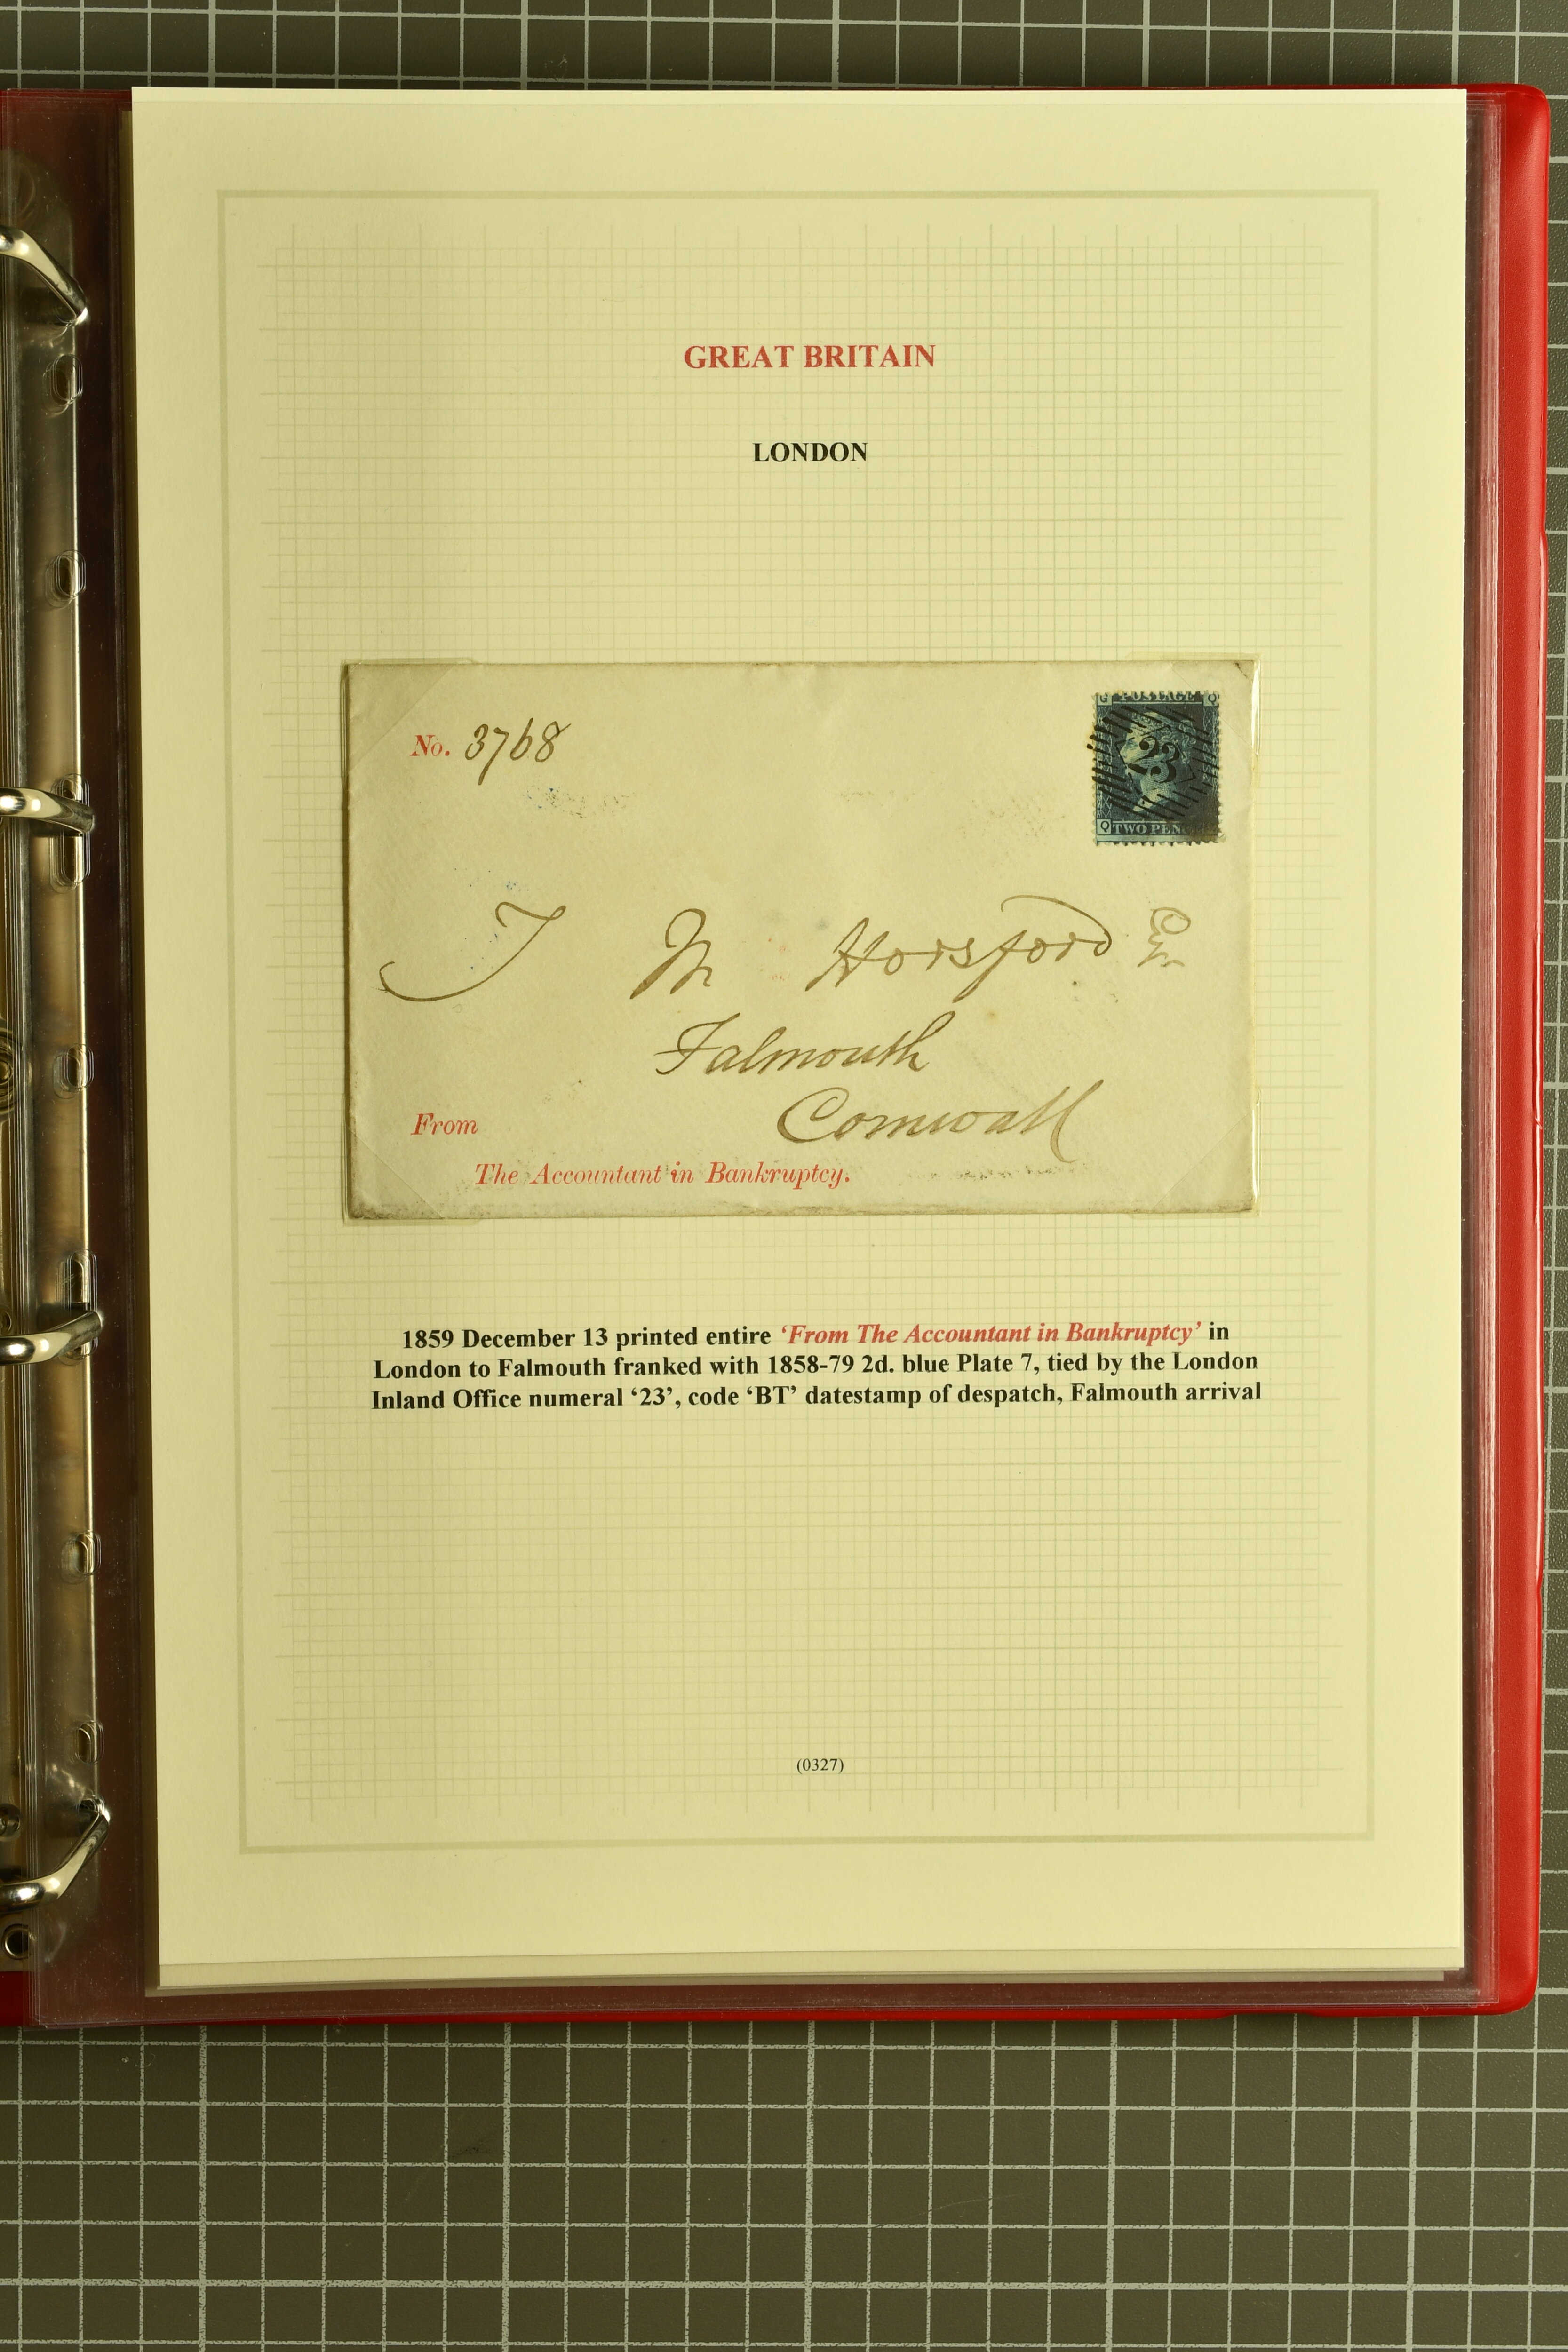 GREAT BRITAIN
LONDON
No. 3768
G POSTAGE Q
23
Q TWO PEN
T M Horsford Esqr
Falmouth
Cornwall
From
The Accountant in Bankruptcy.
1859 December 13 printed entire ‘From The Accountant in Bankruptcy’ in
London to Falmouth franked with 1858-79 2d. blue Plate 7, tied by the London
Inland Office numeral ‘23’, code ‘BT’ datestamp of despatch, Falmouth arrival
(0327)